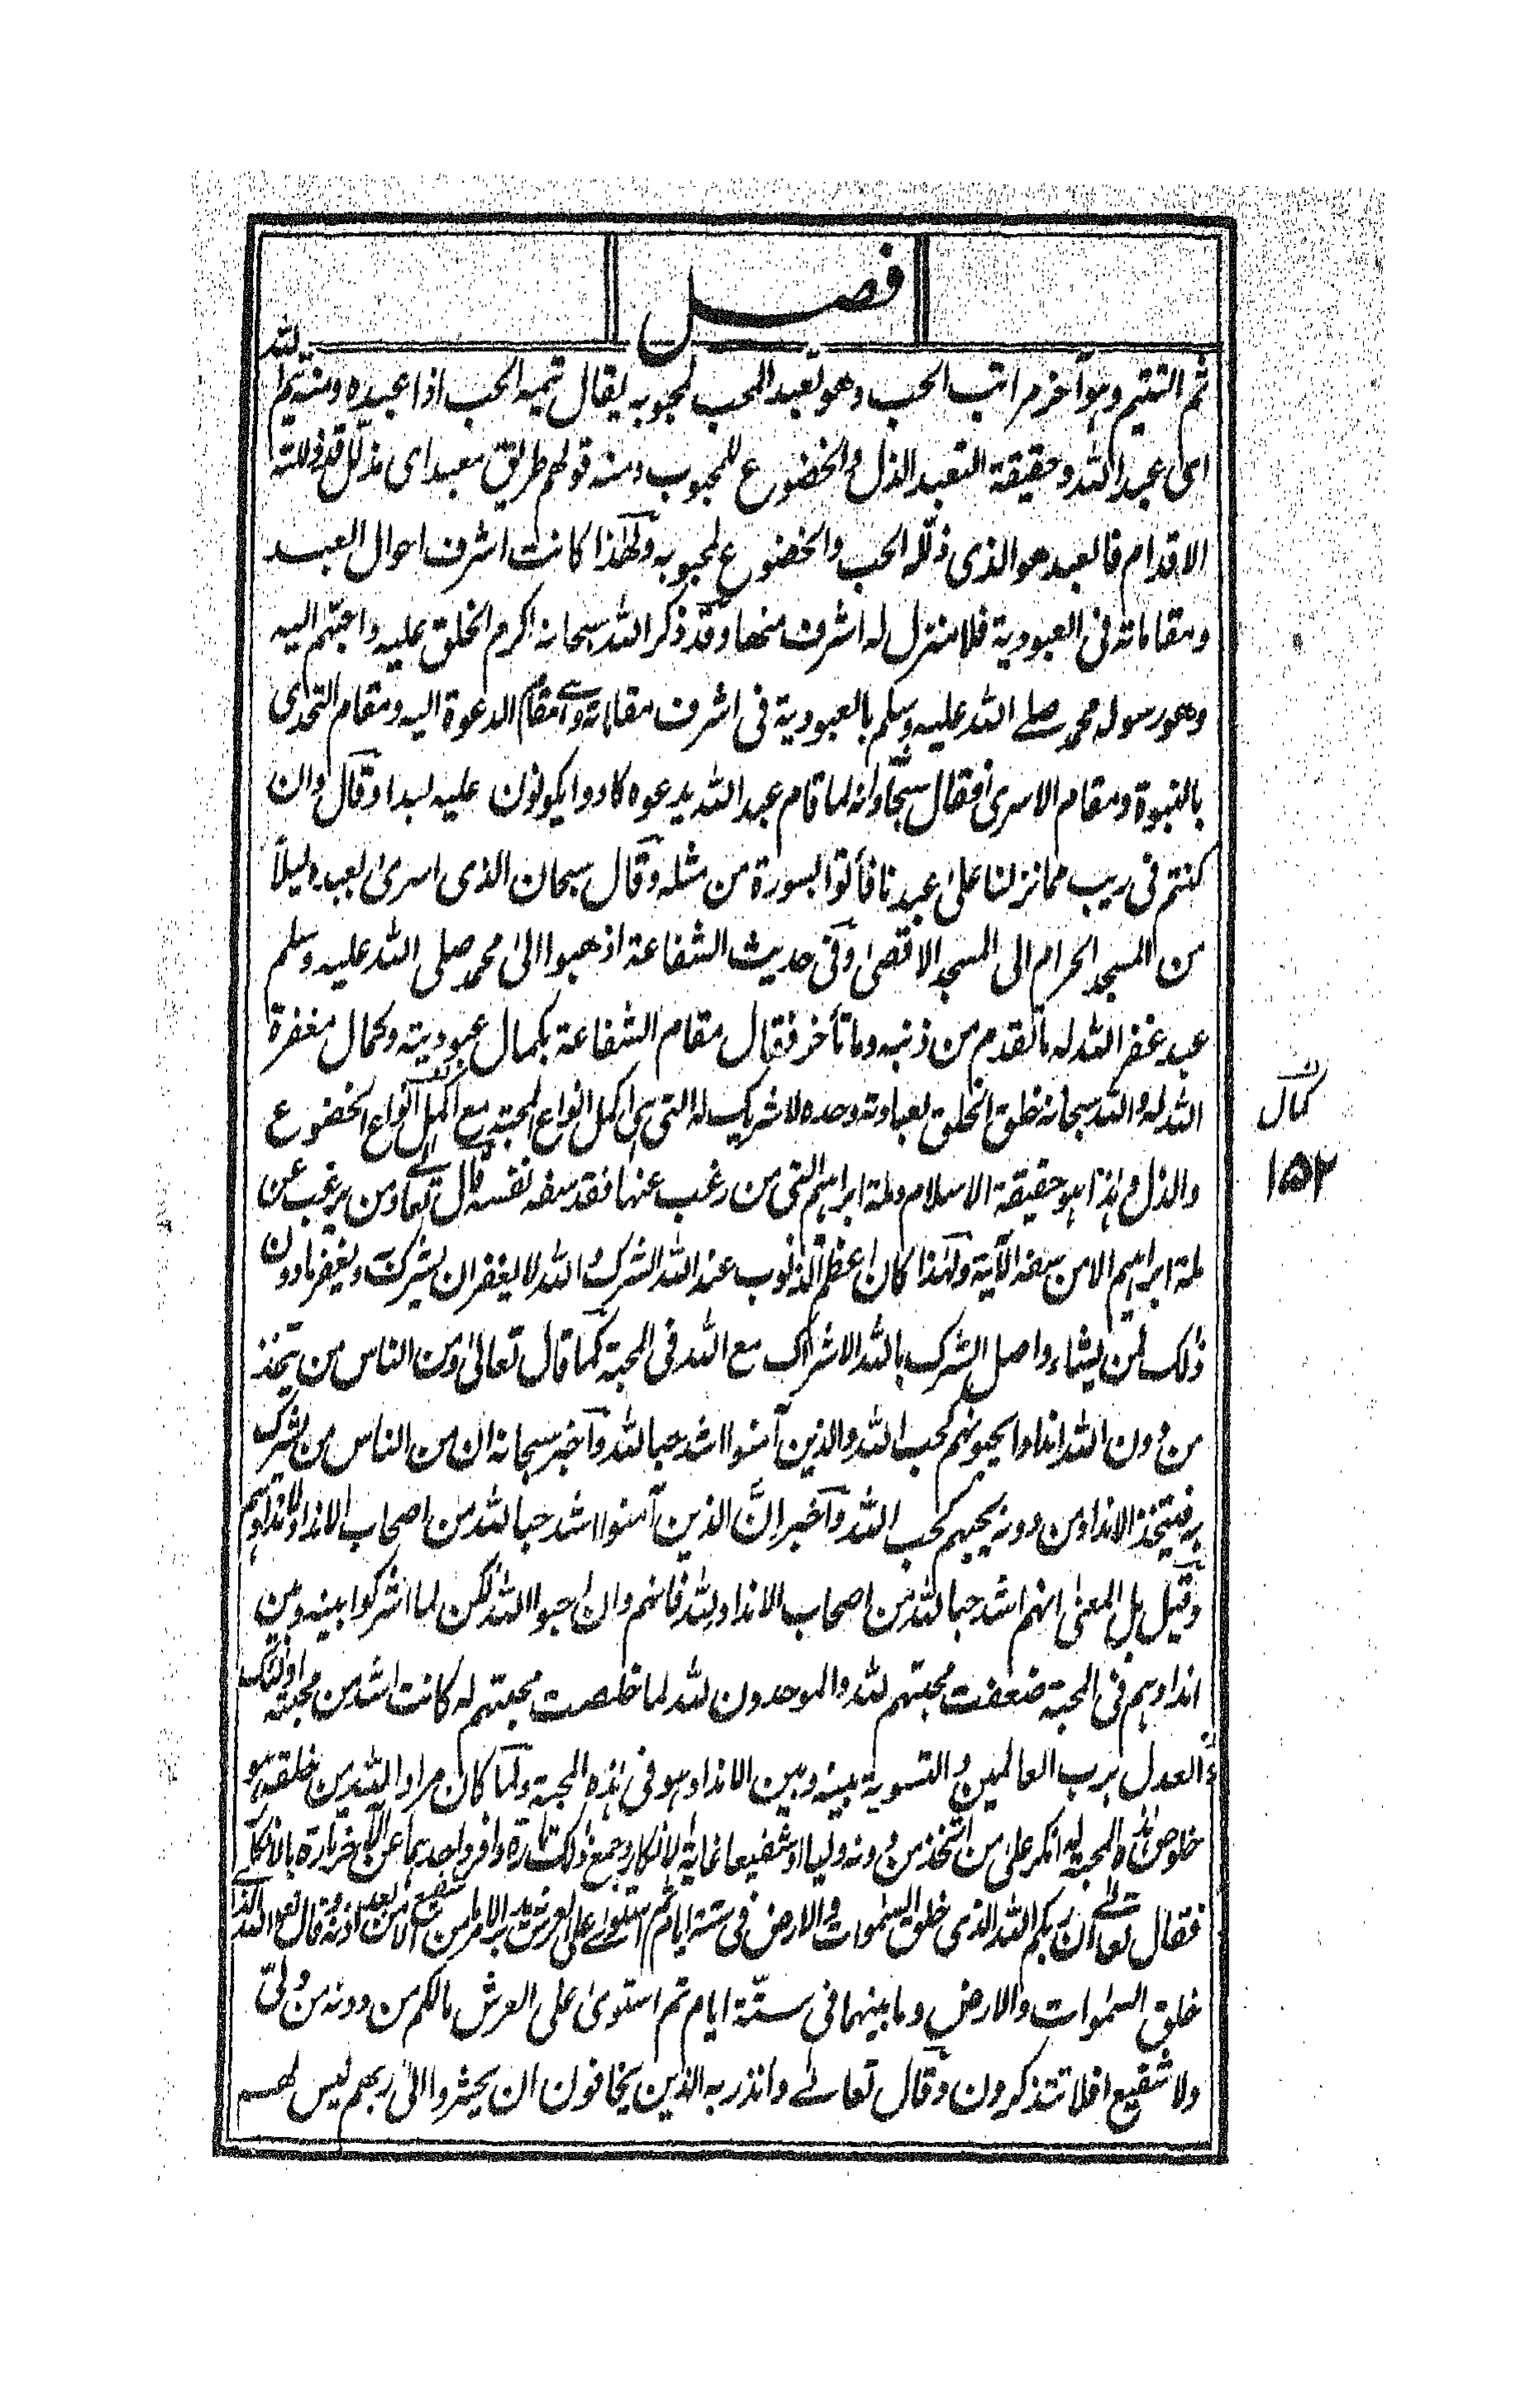 فصل
ثم التتيم وهو آخر مراتب الحب وهو تعبد المحب لمحبوبه يقال تيمه الحب اذا عبده ومنه تيم الله
اى عبد الله وحقيقة التعبد الذل والخضوع للمحبوب ومنه قولهم طريق معبد اى مذلل قد ذللته
الاقدام فالعبد هو الذى ذلله الحب والخضوع لمحبوبه ولهذا كانت اشرف احوال العبد
ومقاماته فى العبودية فلا منزل له اشرف منها وقد ذكر الله سبحانه اكرم الخلق عليه واحبهم اليه
وهو رسوله محمد صلے الله عليه وسلم بالعبودية فى اشرف مقاماته وهے مقام الدعوة اليه ومقام التحدى
بالنبوة ومقام الاسرى فقال سبحانه وانه لما قام عبد الله يدعوه كادوا يكونون عليه لبدا وقال وان
كنتم فى ريب مما نزلنا على عبدنا فأتوا بسورة من مثله وقال سبحان الذى اسرى بعبده ليلاً
من المسجد الحرام الى المسجد الاقصى وفى حديث الشفاعة اذهبوا الى محمد صلى الله عليه وسلم
عبد غفر الله له ما تقدم من ذنبه وما تأخر فقال مقام الشفاعة بكمال عبوديته وكمال مغفرة
الله له والله سبحانه خلق الخلق لعبادته وحده لا شريك له التى هى اكمل انواع المحبة مع اكمل انواع الخضوع
والذل وهذا هو حقيقة الاسلام وملة ابراهيم التى من رغب عنها فقد سفه نفسه قال تعالے ومن يرغب عن
ملة ابراهيم الا من سفه الآية ولهذا كان اعظم الذنوب عند الله الشرك والله لا يغفر ان يشرك به ويغفر ما دون
ذلك لمن يشاء واصل الشرك بالله الاشراك مع الله فى المحبة كما قال تعالى ومن الناس من يتخذ
من دون الله اندادا يحبونهم كحب الله والذين آمنوا اشد حبا لله واخبر سبحانه ان من الناس من يشرك
به فيتخذ الانداد من دونه يحبهم كحب الله واخبر انَّ الذين آمنوا اشد حبا لله من اصحاب الانداد لاندادهم
وقيل بل المعنى انهم اشد حبا لله من اصحاب الانداد لله فانهم وان احبوا الله لكن لما اشركوا بينه وبين
اندادهم فى المحبة ضعفت محبتهم لله والموحدون لله لما خلصت محبتهم له كانت اشد من محبة اولئك
والعدل برب العالمين والتسوية بينه وبين الانداد هو فى هذه المحبة ولما كان مراد الله من خلقه هو
خلوص هذه المحبة له انكر على من اتخذ من دونه وليا او شفيعا غاية الانكار وجمع ذلك تارة وافرد احدهما عن الآخر تارة بالانكار
فقال تعالے ان ربكم الله الذى خلق السموات والارض فى ستة ايام ثم استوے على العرش يدبر الامر ما من شفيع الا من بعد اذنه وقال تعالے الله الذے
خلق السموات والارض وما بينهما فى ستّة ايام ثم استوى على العرش ما لكم من دونه من ولىّ
ولا شفيع افلا تتذكرون وقال تعالے وانذر به الذين يخافون ان يحشروا الى ربهم ليس لهم
كمال
١٥٢